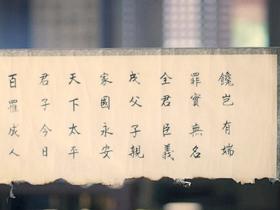 饒岂有端
罪實無名
全君臣義
成父子親
家國永安
天下太平
君子今日
百羅成人